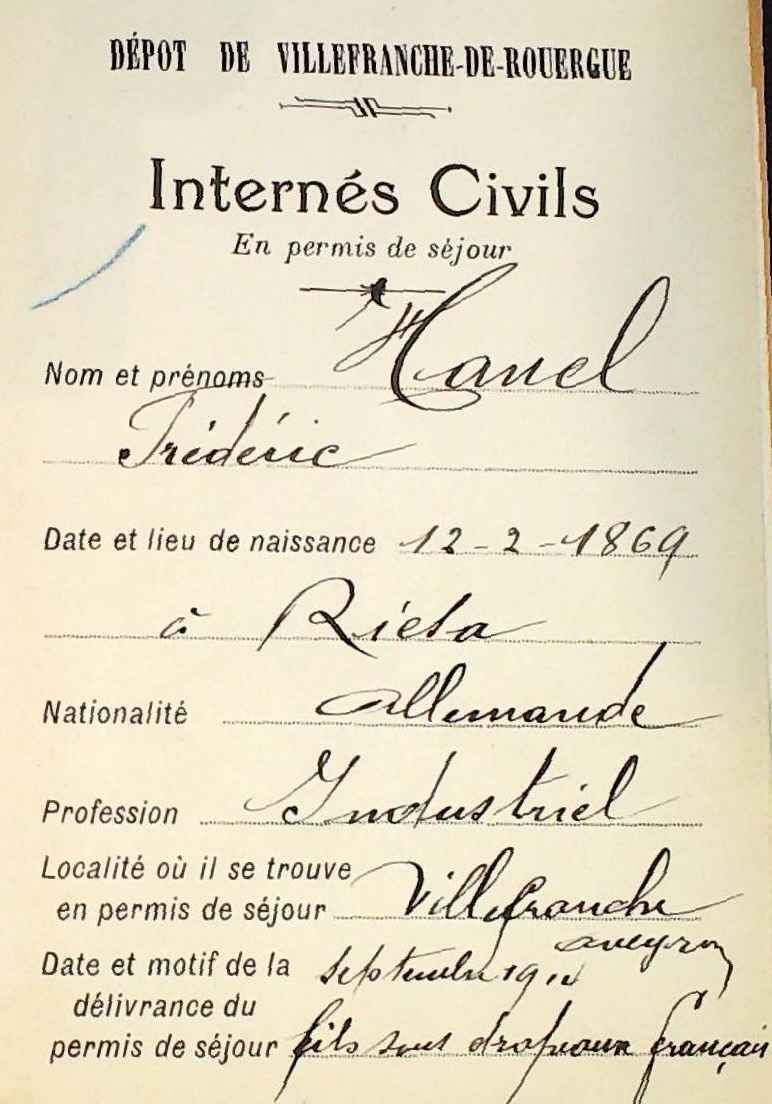 DÉPOT DE VILLEFRANCHE-DE-ROUERGUE
Internés Civils
En permis de séjour
Nom et prénoms Hanel
Frédéric
Date et lieu de naissance 12-2-1869
à Riesa
Nationalité allemande
Profession Industriel
Localité où il se trouve
en permis de séjour Villefranche
aveyron
Date et motif de la septembre
délivrance du
permis de séjour fils sous drapeaux français